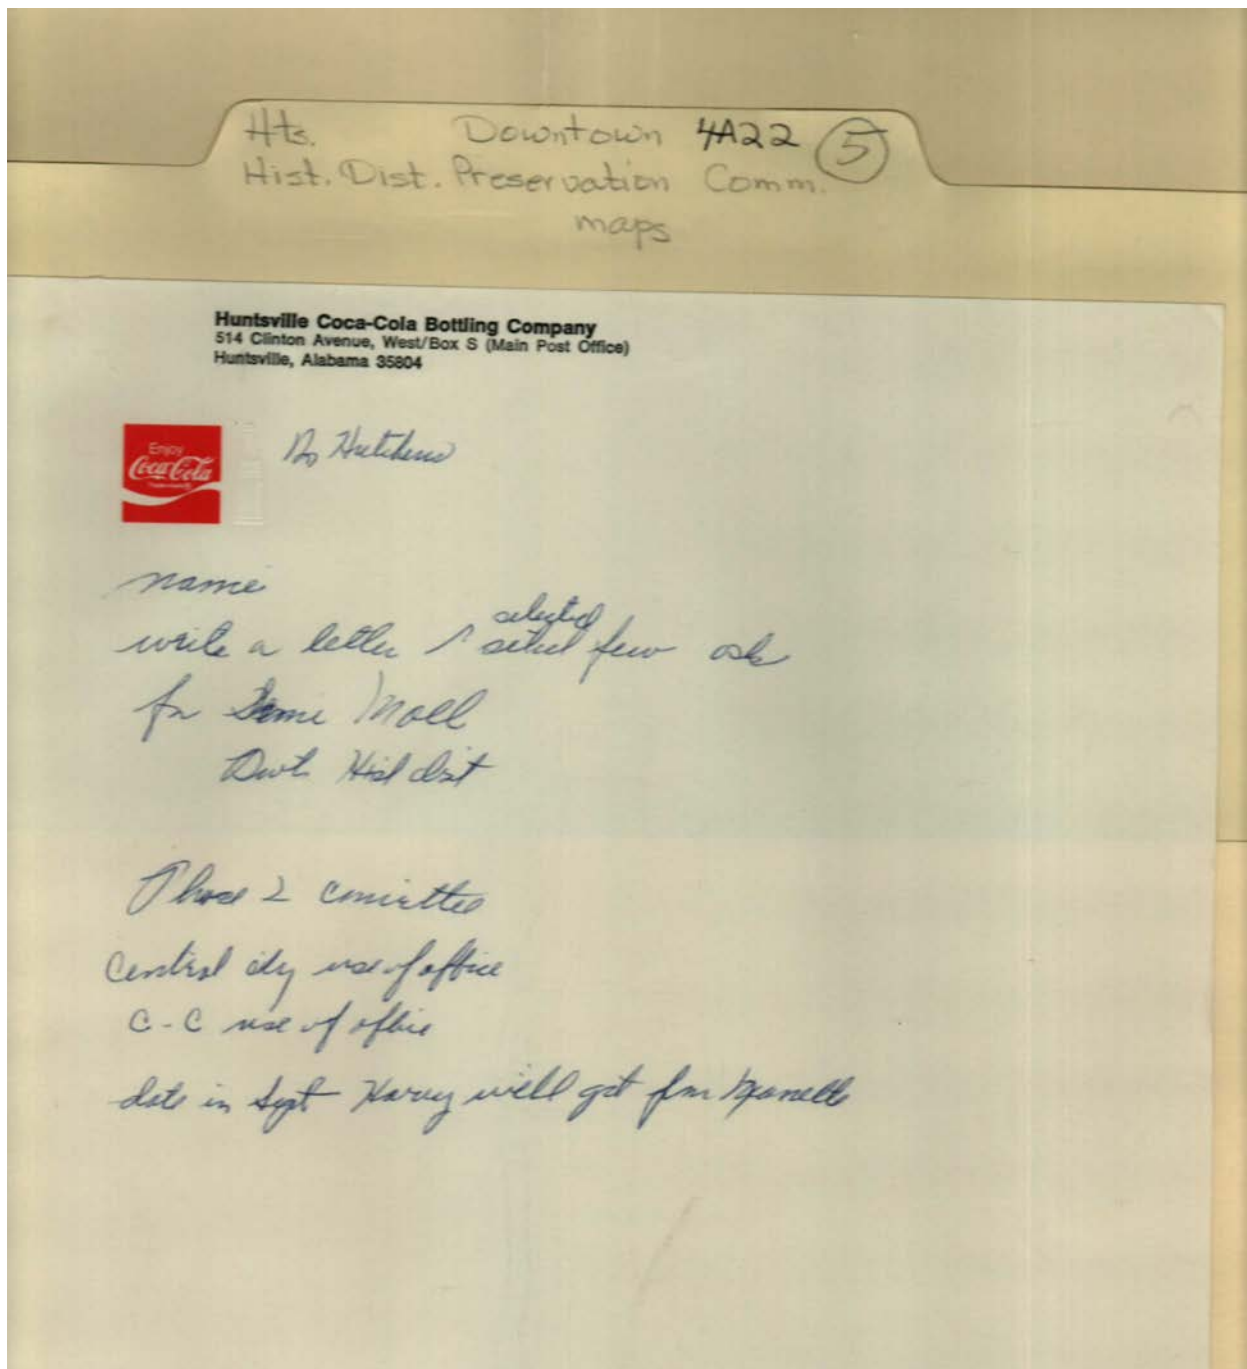 Hts. Downtown 4A22 5
Hist. Dist. Preservation Comm.
maps
Huntsville Coca-Cola Bottling Company
514 Clinton Avenue, West/Box S (Main Post Office)
Huntsville, Alabama 35804
Enjoy
Coca-Cola
Hutchens
name
write a letter selected
few ask
for Moll
Hist dist
Phase 2
Central city use of office
C-C use of offic
date in Sept Harvey will get